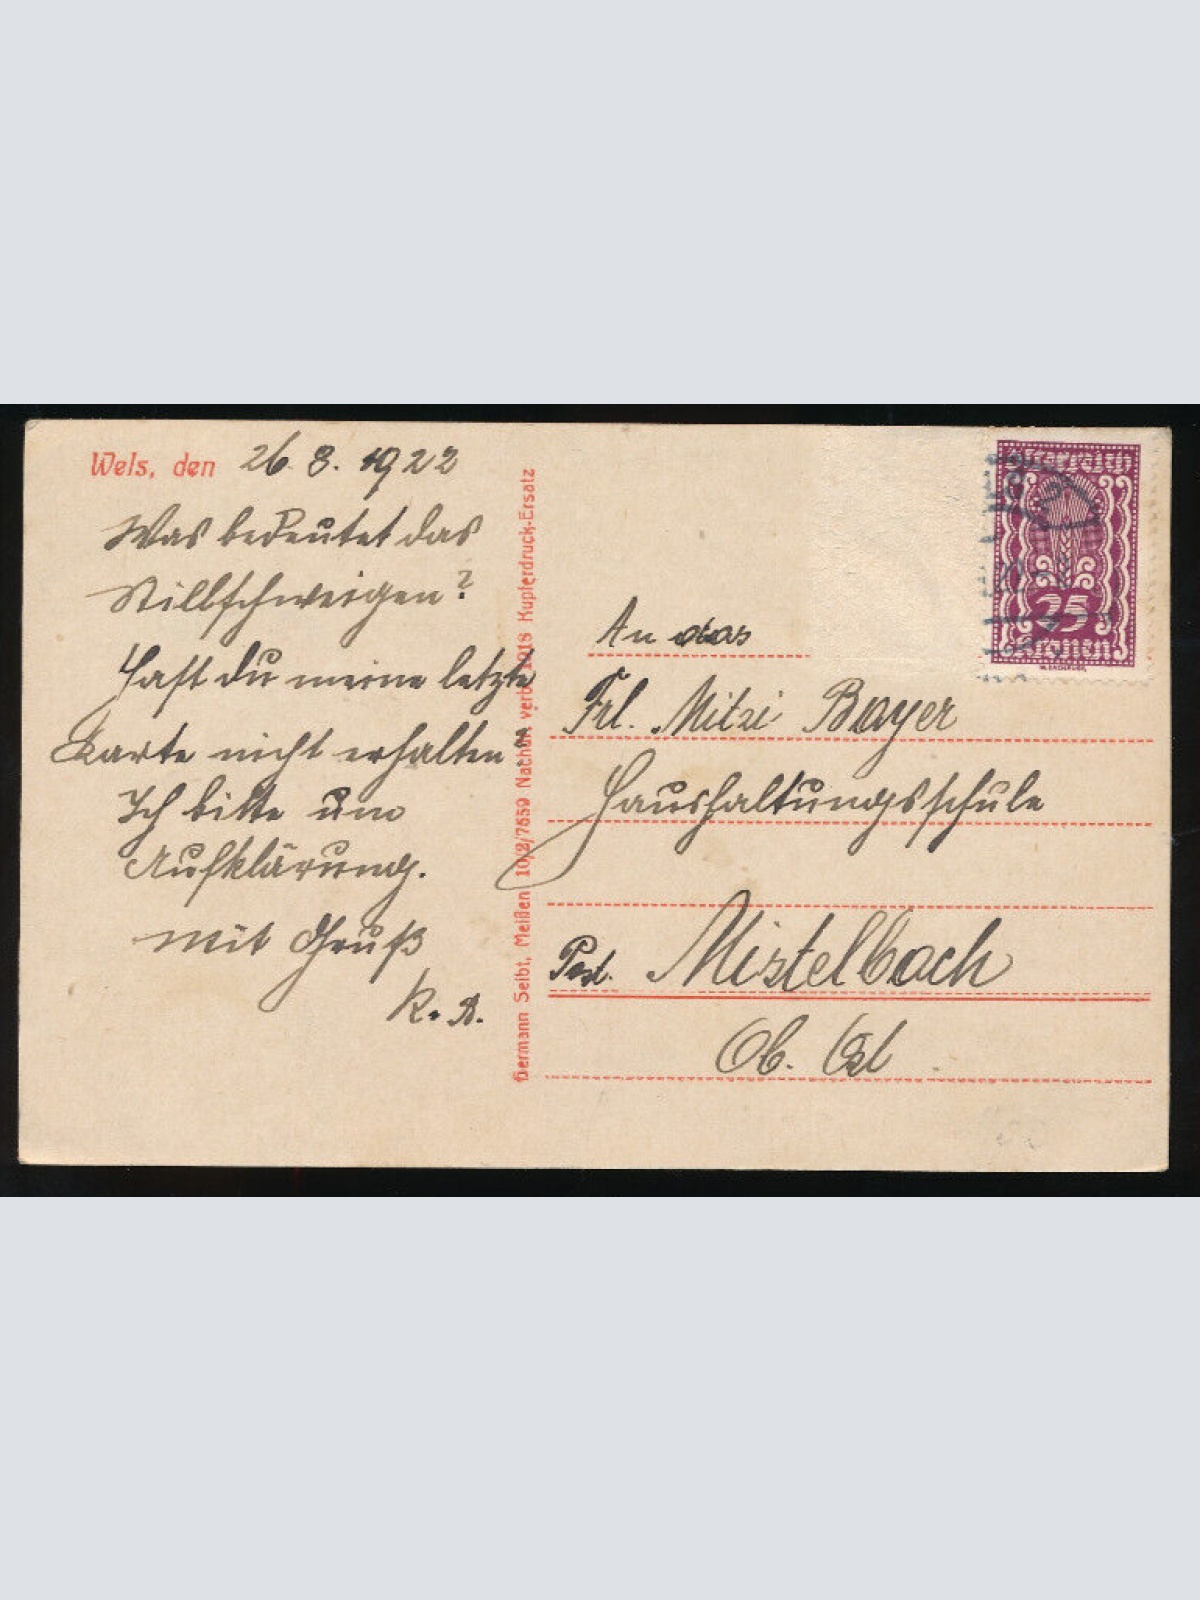 Wels, den 26. 8. 1922
Was bedeutet das
Stillschweigen?
Hast du meine letzte
Karte nicht erhalten?
Ich bitte um
Aufklärung.
Mit Gruß
K. A.
Hermann Seibt, Meißen 10/2/7659 Nachdr. verb. 1918 Kupferdruck-Ersatz
Österreich
25
Kronen
An das
Frl. Mitzi Bayer
Haushaltungsschule
Post. Mistelbach
Ob. Öst